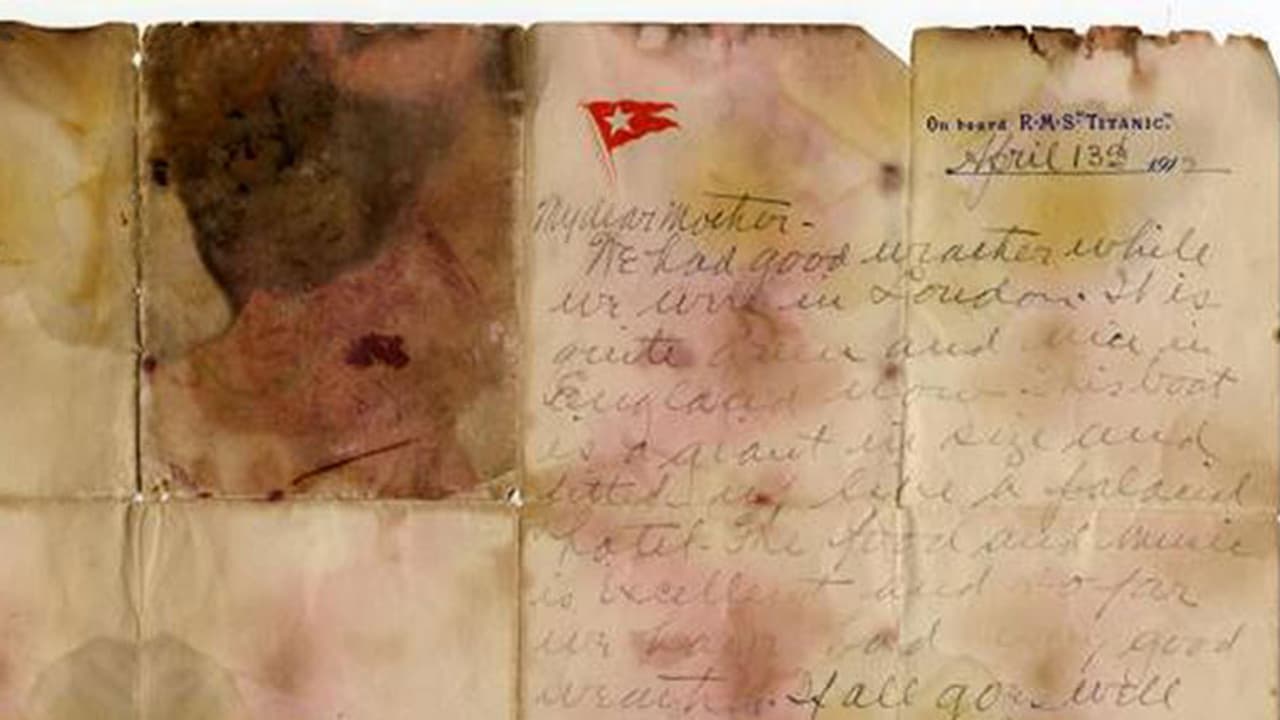 On board R·M·S "TITANIC".
April 13th 1912
My dear Mother -
We had good weather while
we were in London. It is
quite green and nice in
England now. This boat
is a giant in size and
fitted up like a palacial
hotel. The food and music
is excellent and so far
we have had very good
weather. If all goes well